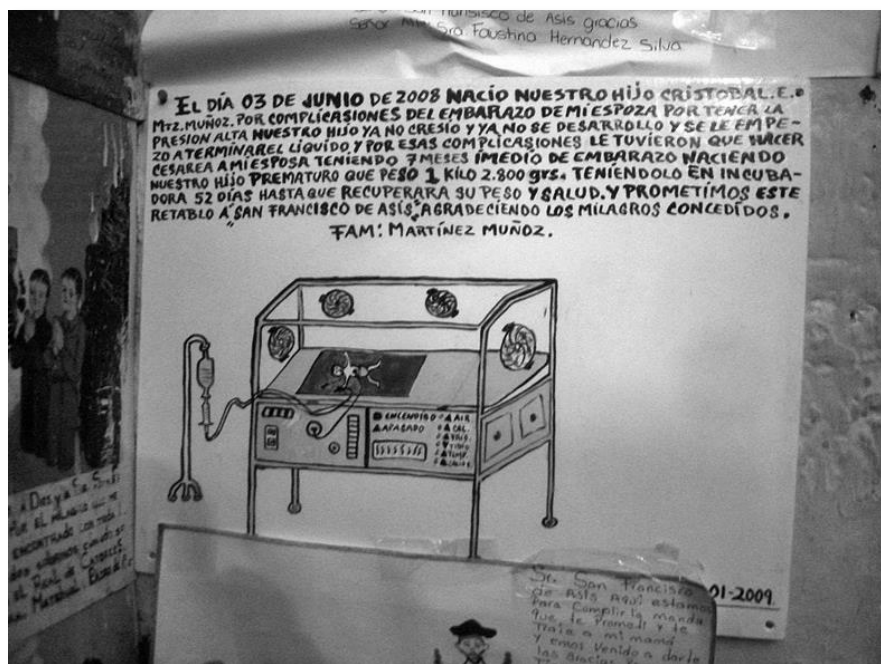 San Fransisco de Asis gracias
Señor Sra Faustina Hernandez Silva
EL DÍA 03 DE JUNIO DE 2008 NACIO NUESTRO HIJO CRISTOBAL.E.
MTZ.MUÑOZ. POR COMPLICASIONES DEL EMBARAZO DE MI ESPOZA POR TENER LA
PRESION ALTA NUESTRO HIJO YA NO CRESIO Y YA NO SE DESARROLLO Y SE LE EMPE-
ZO A TERMINAR EL LIQUIDO, Y POR ESAS COMPLICASIONES LE TUVIERON QUE HACER
CESAREA A MI ESPOSA TENIENDO 7 MESES IMEDIO DE EMBARAZO NACIENDO
NUESTRO HIJO PREMATURO QUE PESO 1 KILO 2.800 grs. TENIÉNDOLO EN INCUBA-
DORA 52 DÍAS HASTA QUE RECUPERARA SU PESO Y SALUD. Y PROMETÍMOS ESTE
RETABLO A "SAN FRANCISCO DE ASÍS" AGRADECIENDO LOS MILAGROS CONCEDÍDOS.
FAM: MARTÍNEZ MUÑOZ.
ENCENDIDO AIR
APAGADO CAL.
TEMP.
01-2009
A Dios y a Sr. San
EL MILAGRO QUE ME
ENCONTRADO CON TODA
EL REAL DE CATORCE
Sr. San Francisco
de Asis Aquí estamos
Para Complir la manda
que te Prometi y te
Traje a mi mamá
y emos venido a darte
las Gracias